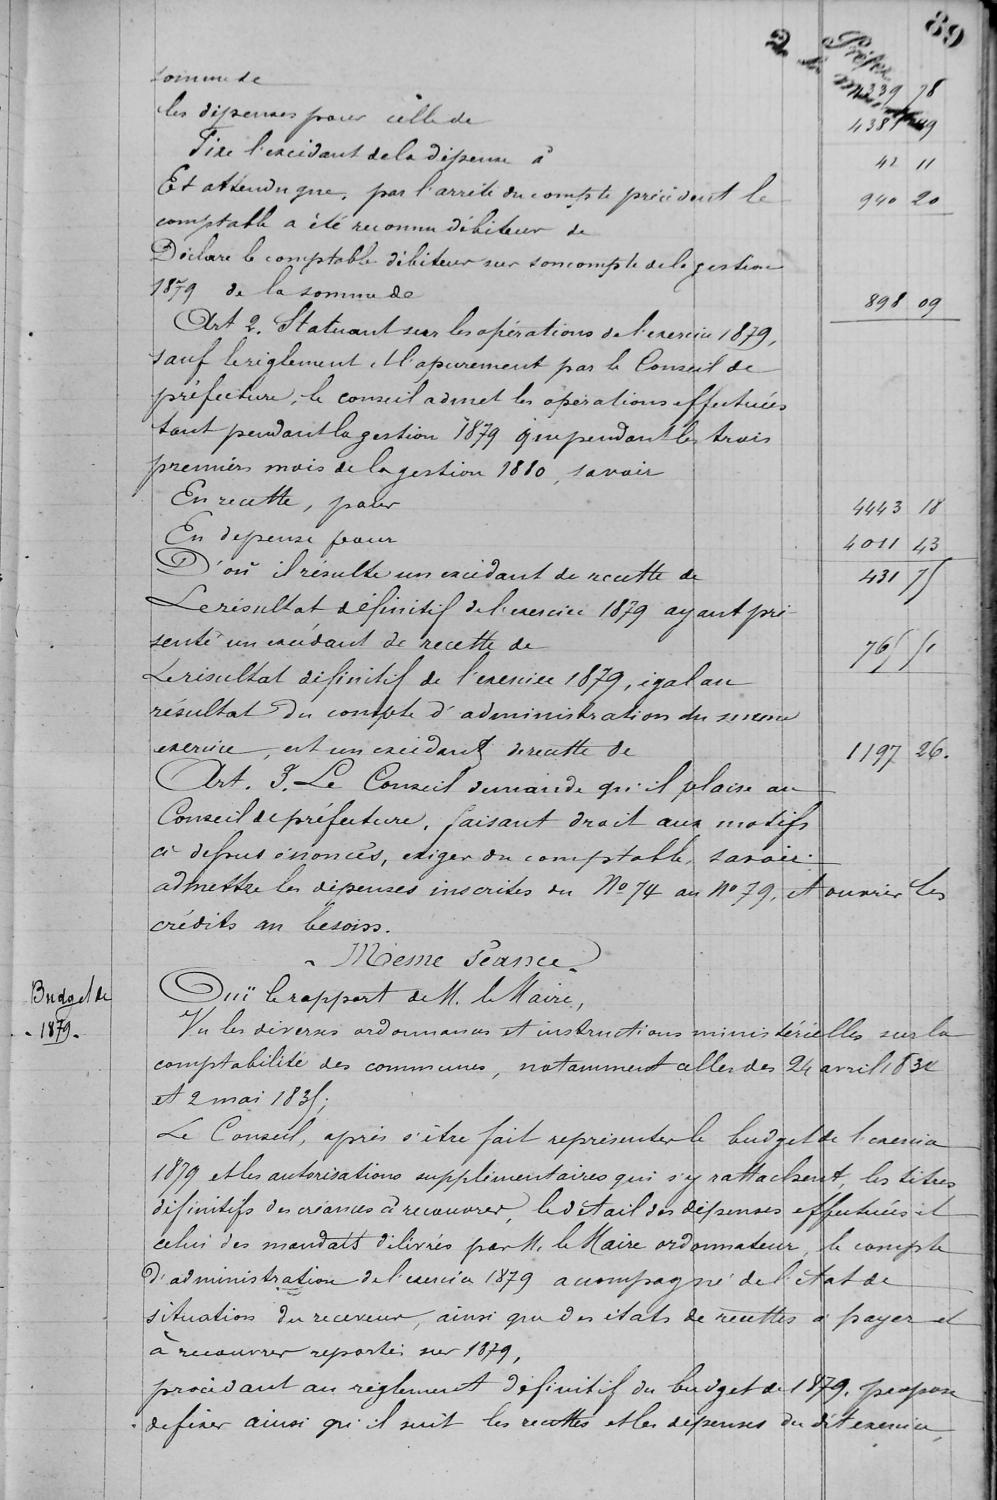 89
somme de 339 78
les dépenses pour celle de 4381 89
Fixe l'excédant de la dépense à 42 11
Et attendu que, par l'arrêté du compte précédent le 940 20
comptable a été reconnu débiteur de
Déclare le comptable débiteur sur son compte de la gestion
1879 de la somme de 898 09
Art 2. Statuant sur les opérations de l'exercice 1879,
sauf le règlement et l'apurement par le Conseil de
préfecture, le conseil admet les opérations effectuées
tant pendant la gestion 1879 que pendant les trois
premiers mois de la gestion 1880, savoir
En recette, pour 4443 18
En depense pour 4011 43
D'où il résulte un excédant de recette de 431 75
Le résultat définitif de l'exercice 1879 ayant pré-
senté un excédant de recette de 765 51
Le résultat définitif de l'exercice 1879, égal au
résultat du compte d'administration du meme
exercice, est un excédant de recette de 1197 26.
Art. 3. Le Conseil demande qu'il plaise au
Conseil de préfecture, faisant droit aux motifs
ci dessus énoncés, exiger du comptable, savoir:
admettre les dépenses inscrites du No 74 au No 79, et ouvrir les
crédits au besoin.
Meme Séance.
Budget de
- 1879 -
Ouï le rapport de M. le Maire,
Vu les diverses ordonnances et instructions ministérielles sur la
comptabilité des communes, notamment celles des 24 avril 1834
et 2 mai 1835;
Le Conseil, après s'être fait représenter le budget de l'exercice
1879 et les autorisations supplémentaires qui s'y rattachent, les titres
définitifs des créances à recouvrer, le détail des dépenses effectuées et
celui des mandats délivrés par M. le Maire ordonnateur, le compte
d'administration de l'exercice 1879 accompagné de l'état de
situation du receveur, ainsi que des états de recettes à payer et
à recouvrer reportés sur 1879,
procédant au règlement définitif du budget de 1879, propose
de fixer ainsi qu'il suit les recettes et les dépenses du dit exercice,